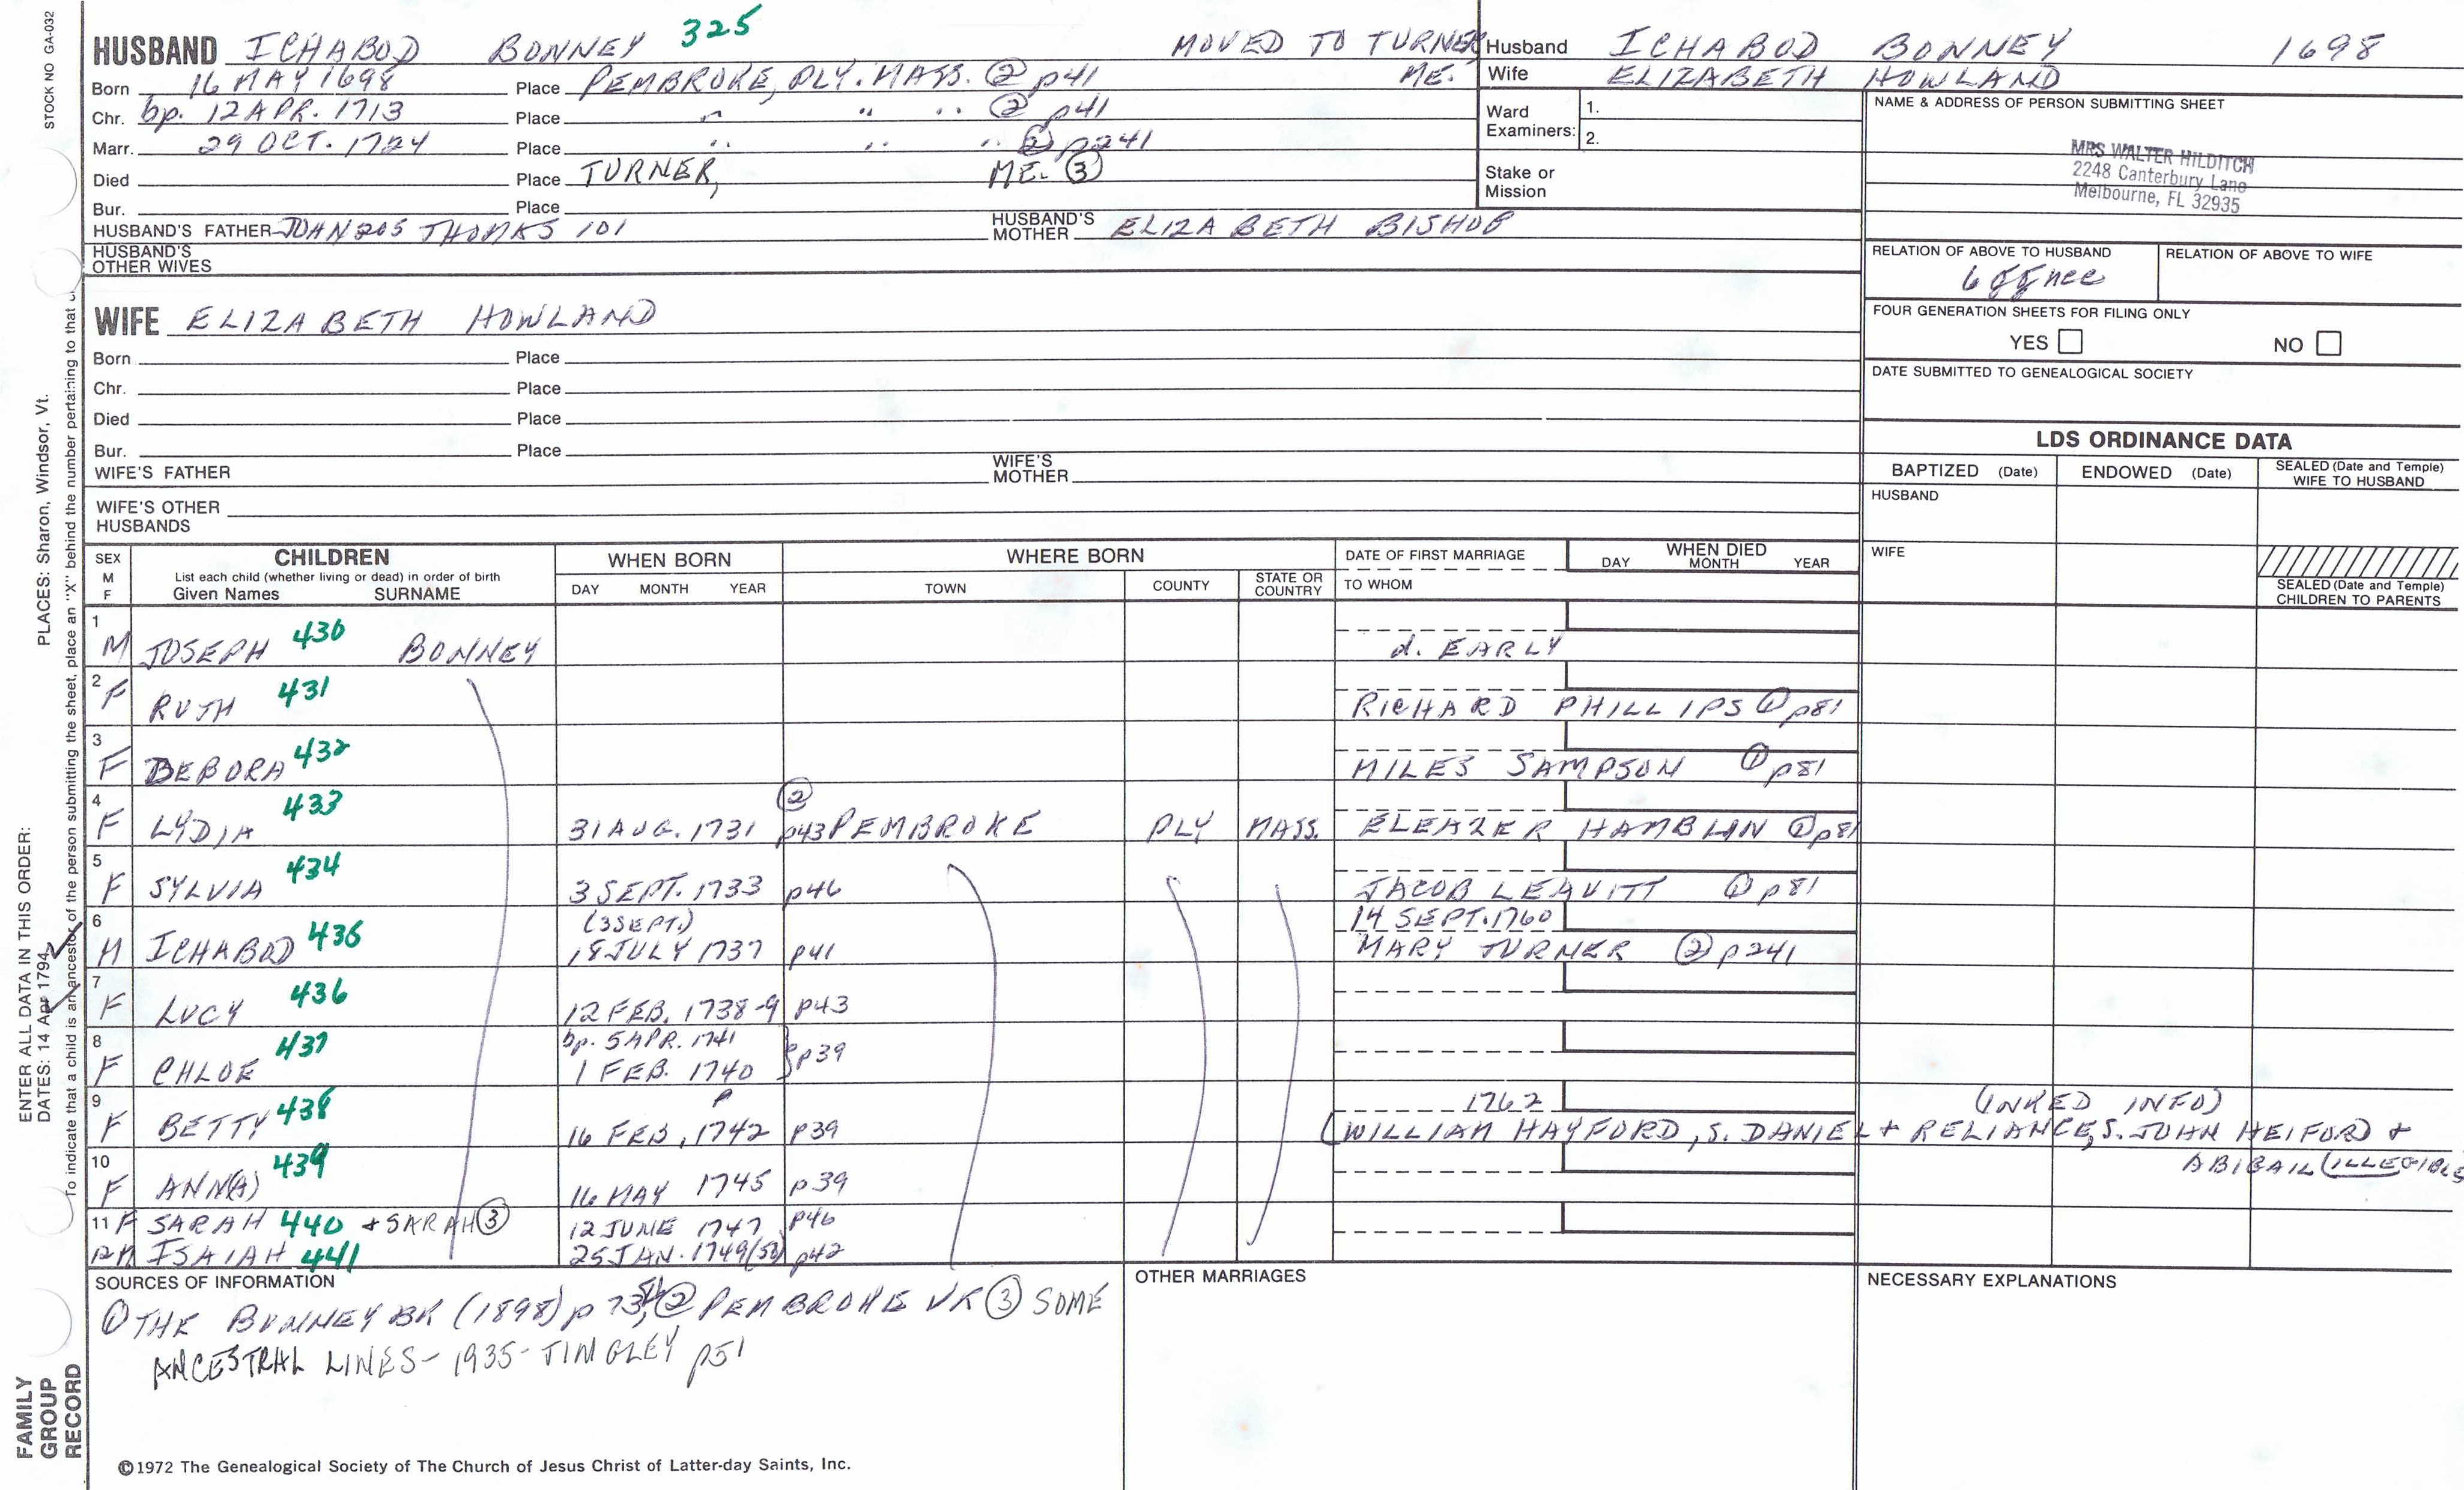 STOCK NO GA-032
HUSBAND ICHABOD BONNEY 325
MOVED TO TURNER
ME.
Born 16 MAY 1698 Place PEMBROKE, PLY. MASS. ② p41
Chr. bp. 12 APR. 1713 Place " " " ② p41
Marr. 29 OCT. 1724 Place " " " ② p241
Died Place TURNER, ME. ③
Bur. Place
HUSBAND'S FATHER JOHN 205 THOMAS 101 HUSBAND'S MOTHER ELIZABETH BISHOP
HUSBAND'S OTHER WIVES
WIFE ELIZABETH HOWLAND
Born Place
Chr. Place
Died Place
Bur. Place
WIFE'S FATHER WIFE'S MOTHER
WIFE'S OTHER HUSBANDS
Husband ICHABOD BONNEY 1698
Wife ELIZABETH HOWLAND
Ward Examiners: 1.
2.
Stake or Mission
NAME & ADDRESS OF PERSON SUBMITTING SHEET
MRS WALTER HILDITCH
2248 Canterbury Lane
Melbourne, FL 32935
RELATION OF ABOVE TO HUSBAND RELATION OF ABOVE TO WIFE
FOUR GENERATION SHEETS FOR FILING ONLY
YES NO
DATE SUBMITTED TO GENEALOGICAL SOCIETY
LDS ORDINANCE DATA
BAPTIZED (Date) ENDOWED (Date) SEALED (Date and Temple) WIFE TO HUSBAND
HUSBAND
WIFE
SEALED (Date and Temple) CHILDREN TO PARENTS
SEX M F CHILDREN WHEN BORN WHERE BORN DATE OF FIRST MARRIAGE WHEN DIED
List each child (whether living or dead) in order of birth
Given Names SURNAME DAY MONTH YEAR TOWN COUNTY STATE OR COUNTRY TO WHOM DAY MONTH YEAR
1 M JOSEPH 430 BONNEY d. EARLY
2 F RUTH 431 RICHARD PHILLIPS ① p81
3 F DEBORA 432 MILES SAMPSON ① p81
4 F LYDIA 433 31 AUG. 1731 ② p43 PEMBROKE PLY MASS. ELEAZER HAMBLIN ① p81
5 F SYLVIA 434 3 SEPT. 1733 p46 JACOB LEAVITT ① p81
6 (3 SEPT.) 14 SEPT. 1760
M ICHABOD 436 18 JULY 1737 p41 MARY TURNER ② p241
7 F LUCY 436 12 FEB. 1738-9 p43
8 bp. 5 APR. 1741
F CHLOE 437 1 FEB. 1740 } p39
9 1762 (INKED INFO)
F BETTY 438 16 FEB, 1742 p39 (WILLIAM HAYFORD, S. DANIEL + RELIANCE, S. JOHN HEIFORD +
ABIGAIL (ILLEGIBLE
10 F ANN(A) 439 16 MAY 1745 p39
11 F SARAH 440 + SARAH ③ 12 JUNE 1747 p46
12 M ISAIAH 441 25 JAN. 1749(50) p42
SOURCES OF INFORMATION
① THE BONNEY BK (1898) p 73, ② PEMBROKE VR ③ SOME
ANCESTRAL LINES - 1935 - TINGLEY p51
OTHER MARRIAGES
NECESSARY EXPLANATIONS
©1972 The Genealogical Society of The Church of Jesus Christ of Latter-day Saints, Inc.
PLACES: Sharon, Windsor, Vt.
ENTER ALL DATA IN THIS ORDER:
DATES: 14 Apr 1794
To indicate that a child is an ancestor of the person submitting the sheet, place an "X" behind the number pertaining to that
FAMILY
GROUP
RECORD